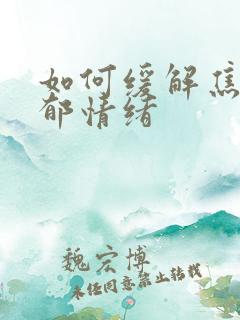 如何缓解焦
郁情绪
魏宏博
未经同意禁止转载